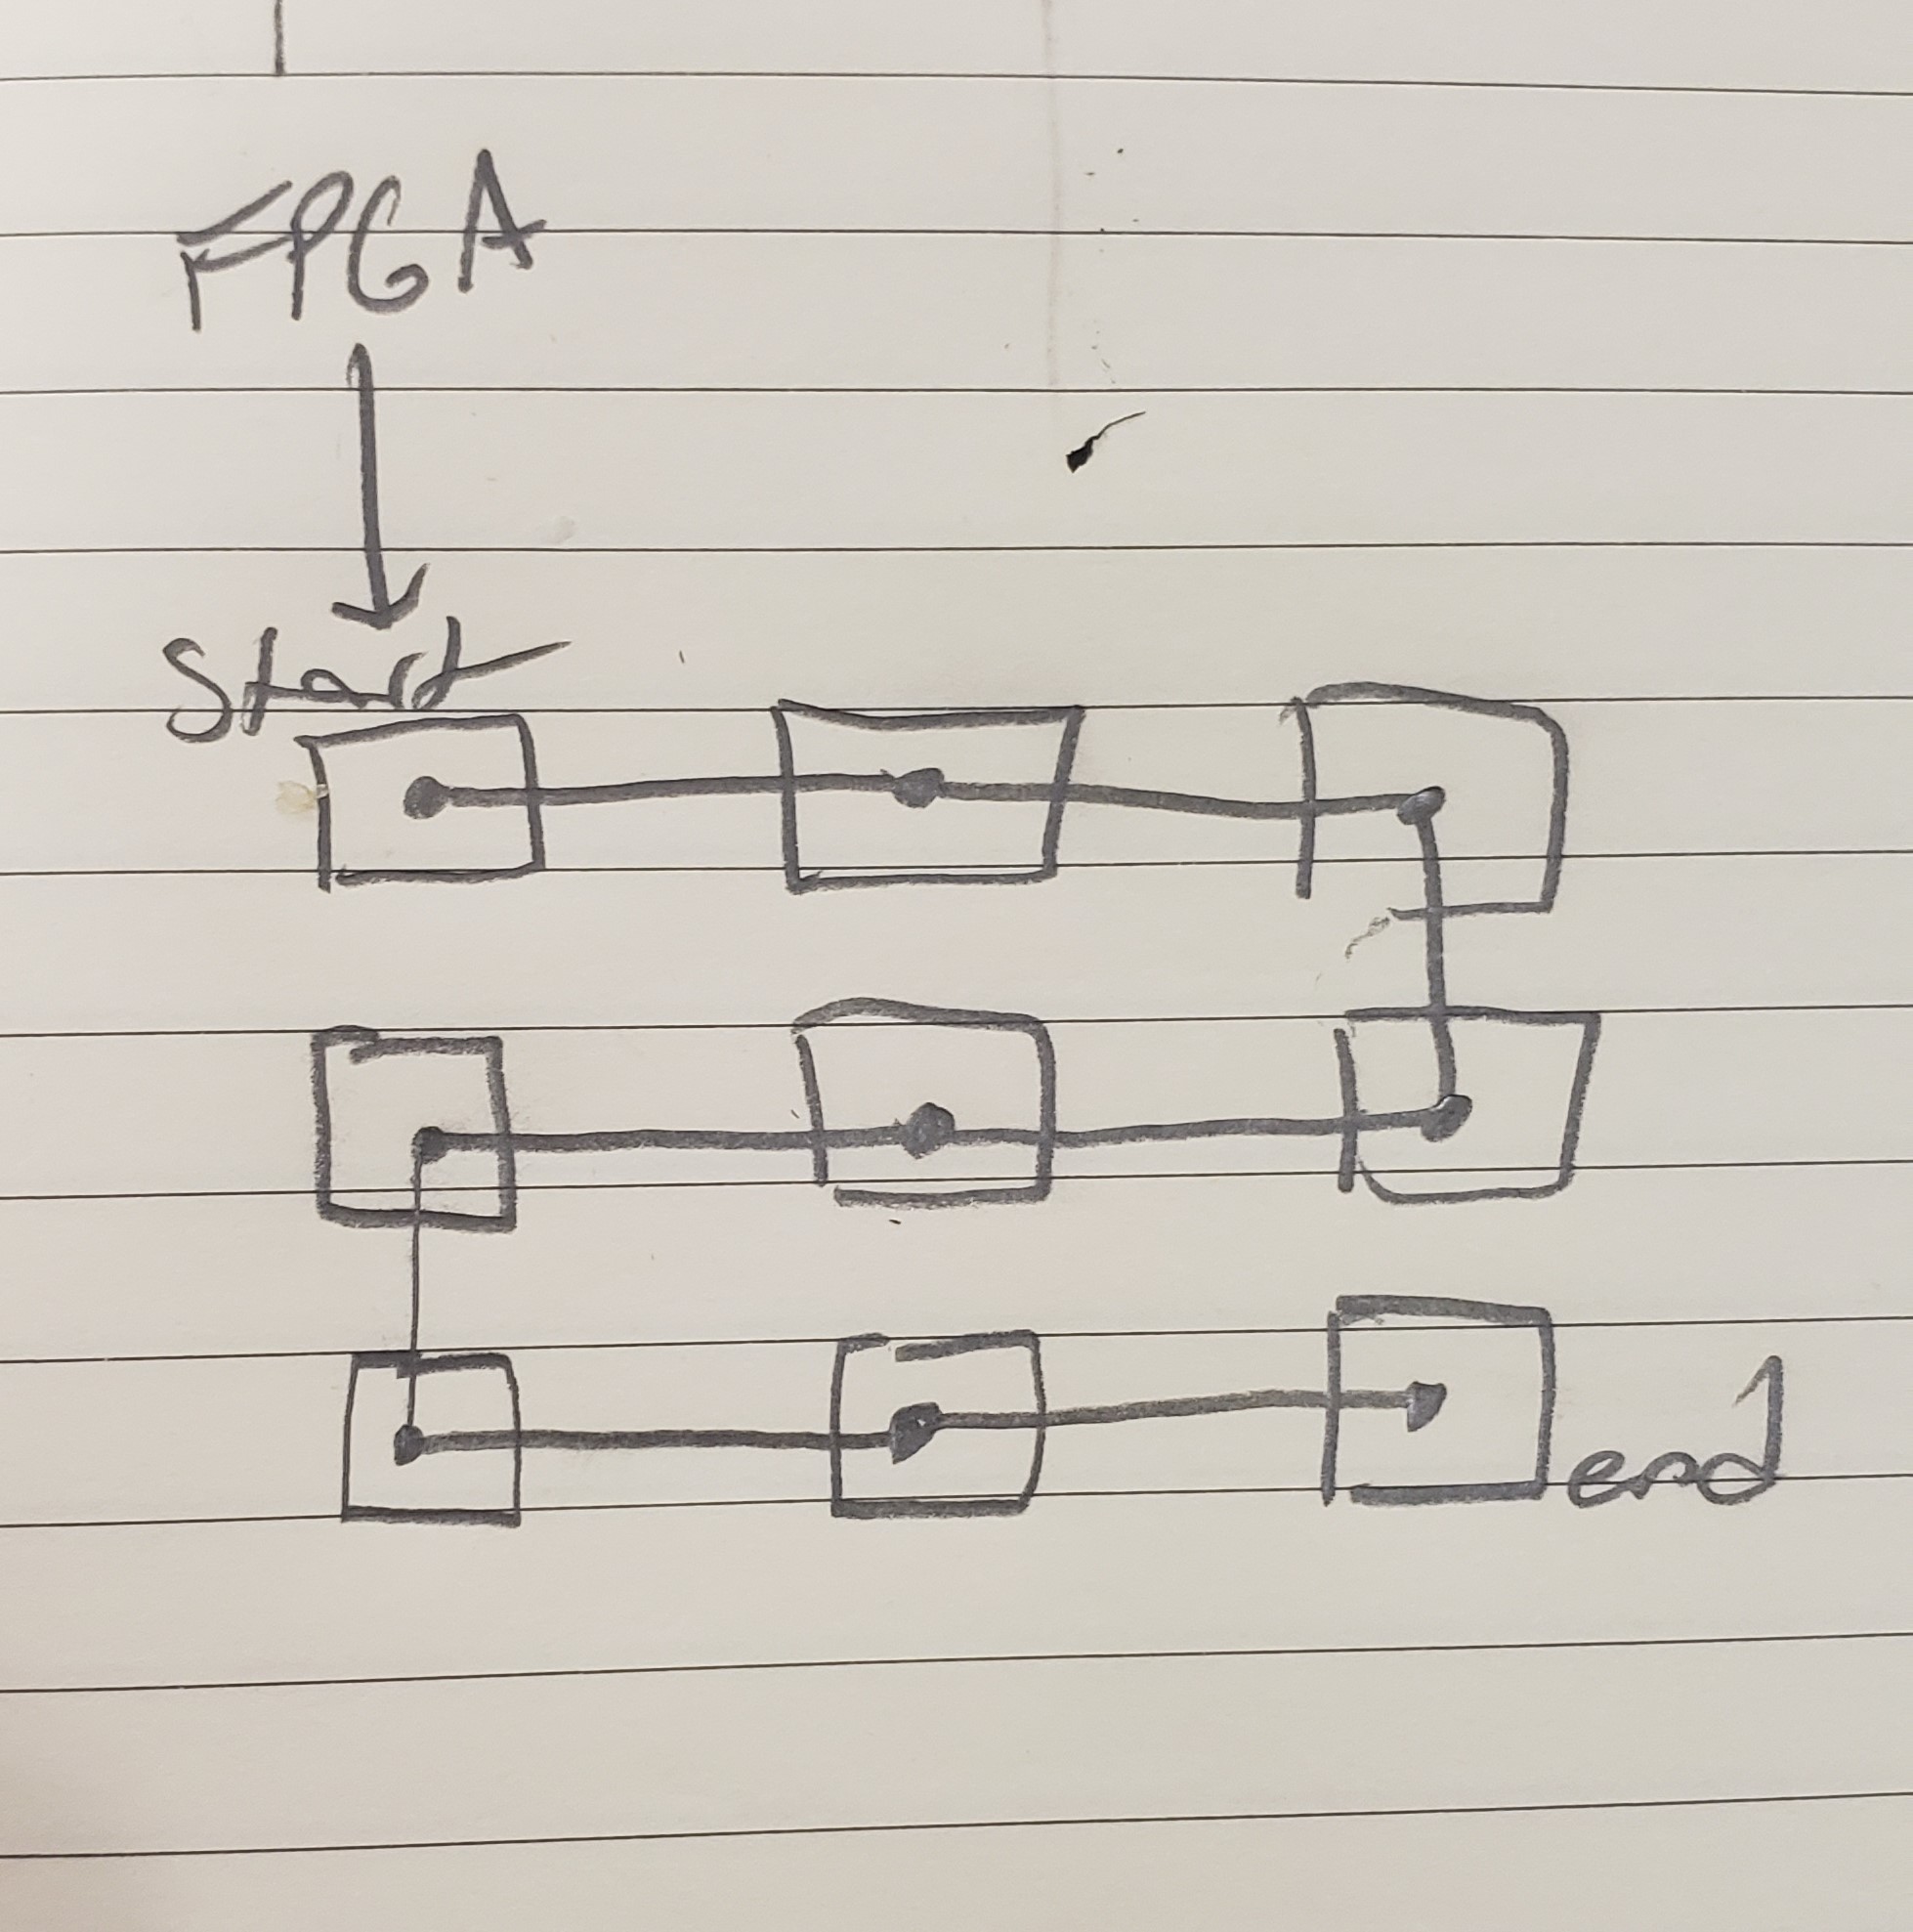 FPGA
Start
end